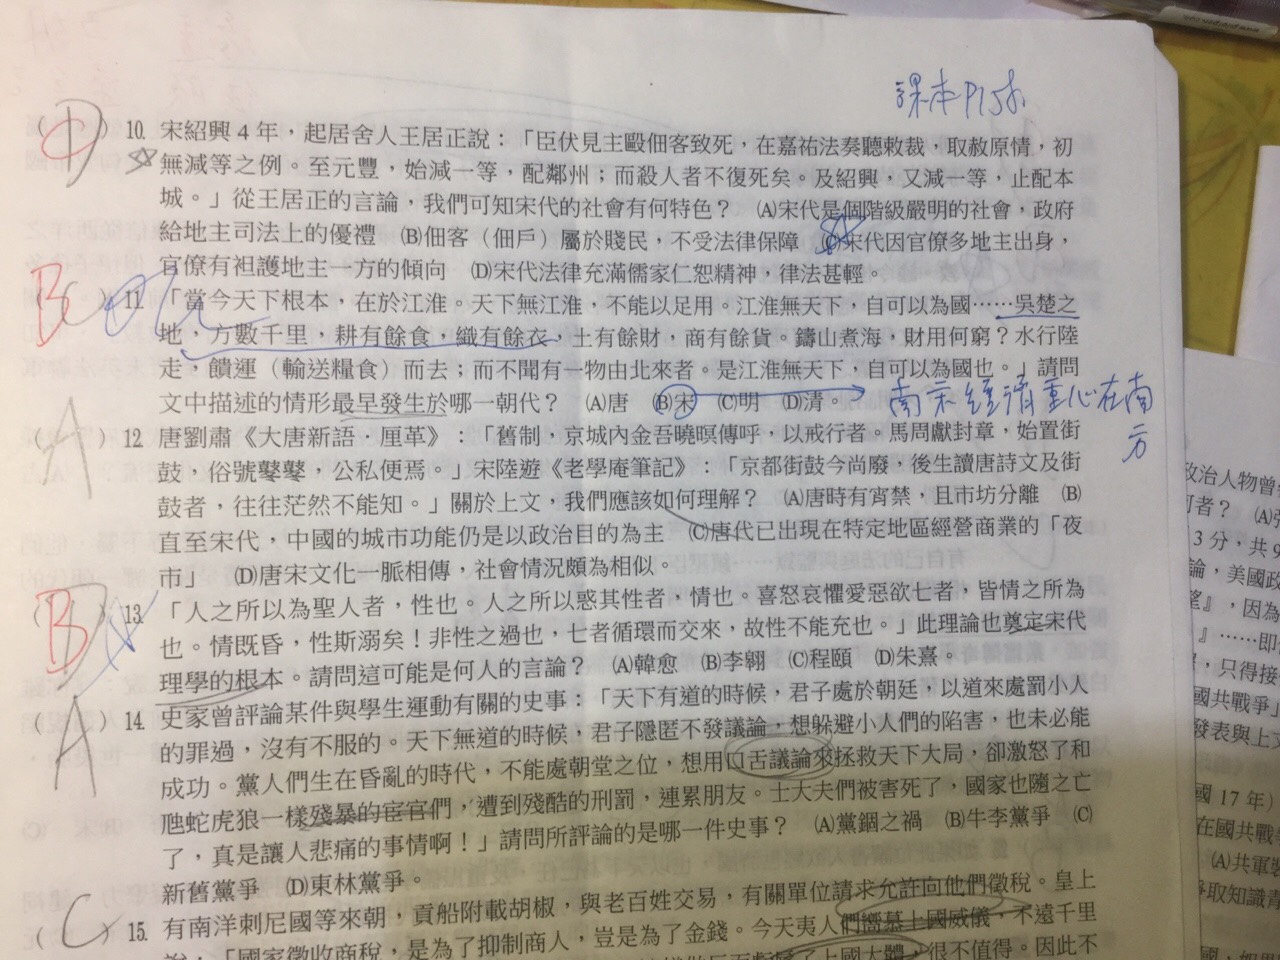 課本P156
( C ) 10. 宋紹興4年，起居舍人王居正說：「臣伏見主毆佃客致死，在嘉祐法奏聽敕裁，取赦原情，初
無減等之例。至元豐，始減一等，配鄰州；而殺人者不復死矣。及紹興，又減一等，止配本
城。」從王居正的言論，我們可知宋代的社會有何特色？ (A)宋代是個階級嚴明的社會，政府
給地主司法上的優禮 (B)佃客（佃戶）屬於賤民，不受法律保障 (C)宋代因官僚多地主出身，
官僚有袒護地主一方的傾向 (D)宋代法律充滿儒家仁恕精神，律法甚輕。
B 11. 「當今天下根本，在於江淮。天下無江淮，不能以足用。江淮無天下，自可以為國……吳楚之
地，方數千里，耕有餘食，織有餘衣，土有餘財，商有餘貨。鑄山煮海，財用何窮？水行陸
走，饋運（輸送糧食）而去；而不聞有一物由北來者。是江淮無天下，自可以為國也。」請問
文中描述的情形最早發生於哪一朝代？ (A)唐 (B)宋 (C)明 (D)清。
南宋經濟重心在南
方
( A ) 12. 唐劉肅《大唐新語．厘革》：「舊制，京城內金吾曉暝傳呼，以戒行者。馬周獻封章，始置街
鼓，俗號鼕鼕，公私便焉。」宋陸遊《老學庵筆記》：「京都街鼓今尚廢，後生讀唐詩文及街
鼓者，往往茫然不能知。」關於上文，我們應該如何理解？ (A)唐時有宵禁，且市坊分離 (B)
直至宋代，中國的城市功能仍是以政治目的為主 (C)唐代已出現在特定地區經營商業的「夜
市」 (D)唐宋文化一脈相傳，社會情況頗為相似。
( B ) 13. 「人之所以為聖人者，性也。人之所以惑其性者，情也。喜怒哀懼愛惡欲七者，皆情之所為
也。情既昏，性斯溺矣！非性之過也，七者循環而交來，故性不能充也。」此理論也奠定宋代
理學的根本。請問這可能是何人的言論？ (A)韓愈 (B)李翱 (C)程頤 (D)朱熹。
( A ) 14. 史家曾評論某件與學生運動有關的史事：「天下有道的時候，君子處於朝廷，以道來處罰小人
的罪過，沒有不服的。天下無道的時候，君子隱匿不發議論，想躲避小人們的陷害，也未必能
成功。黨人們生在昏亂的時代，不能處朝堂之位，想用口舌議論來拯救天下大局，卻激怒了和
虺蛇虎狼一樣殘暴的宦官們，遭到殘酷的刑罰，連累朋友。士大夫們被害死了，國家也隨之亡
了，真是讓人悲痛的事情啊！」請問所評論的是哪一件史事？ (A)黨錮之禍 (B)牛李黨爭 (C)
新舊黨爭 (D)東林黨爭。
( C ) 15. 有南洋刺尼國等來朝，貢船附載胡椒，與老百姓交易，有關單位請求允許向他們徵稅。皇上
說：「國家徵收商稅，是為了抑制商人，豈是為了金錢。今天夷人們嚮慕上國威儀，不遠千里
上國大體，很不值得。因此不
政治人物曾
可者？ (A)
3 分，共 9
論，美國政
望』，因為
』……即
，只得接
國共戰爭」
發表與上文
國 17 年）
在國共戰
(A)共軍裝
爭取知識青